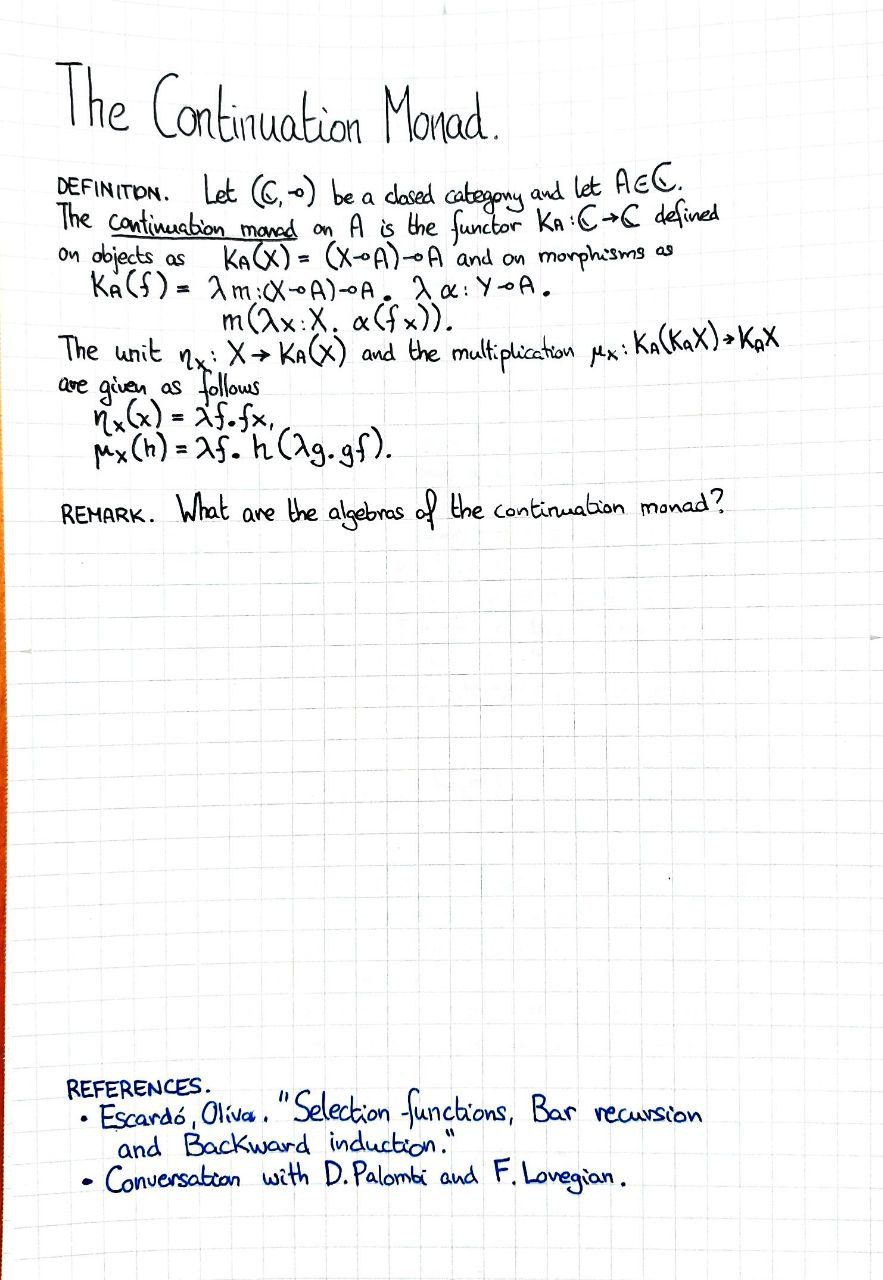 The Continuation Monad.
DEFINITION. Let (ℂ,⊸) be a closed category and let A∈ℂ.
The continuation monad on A is the functor K_A : ℂ→ℂ defined
on objects as K_A(X) = (X⊸A)⊸A and on morphisms as
K_A(f) = λm:(X⊸A)⊸A. λα:Y⊸A.
m(λx:X. α(fx)).
The unit η_x : X → K_A(X) and the multiplication μ_x : K_A(K_A X)→K_A X
are given as follows
η_x(x) = λf.fx,
μ_x(h) = λf. h(λg.gf).
REMARK. What are the algebras of the continuation monad?
REFERENCES.
• Escardó, Oliva. "Selection functions, Bar recursion
and Backward induction."
• Conversation with D. Palombi and F. Lovegian.